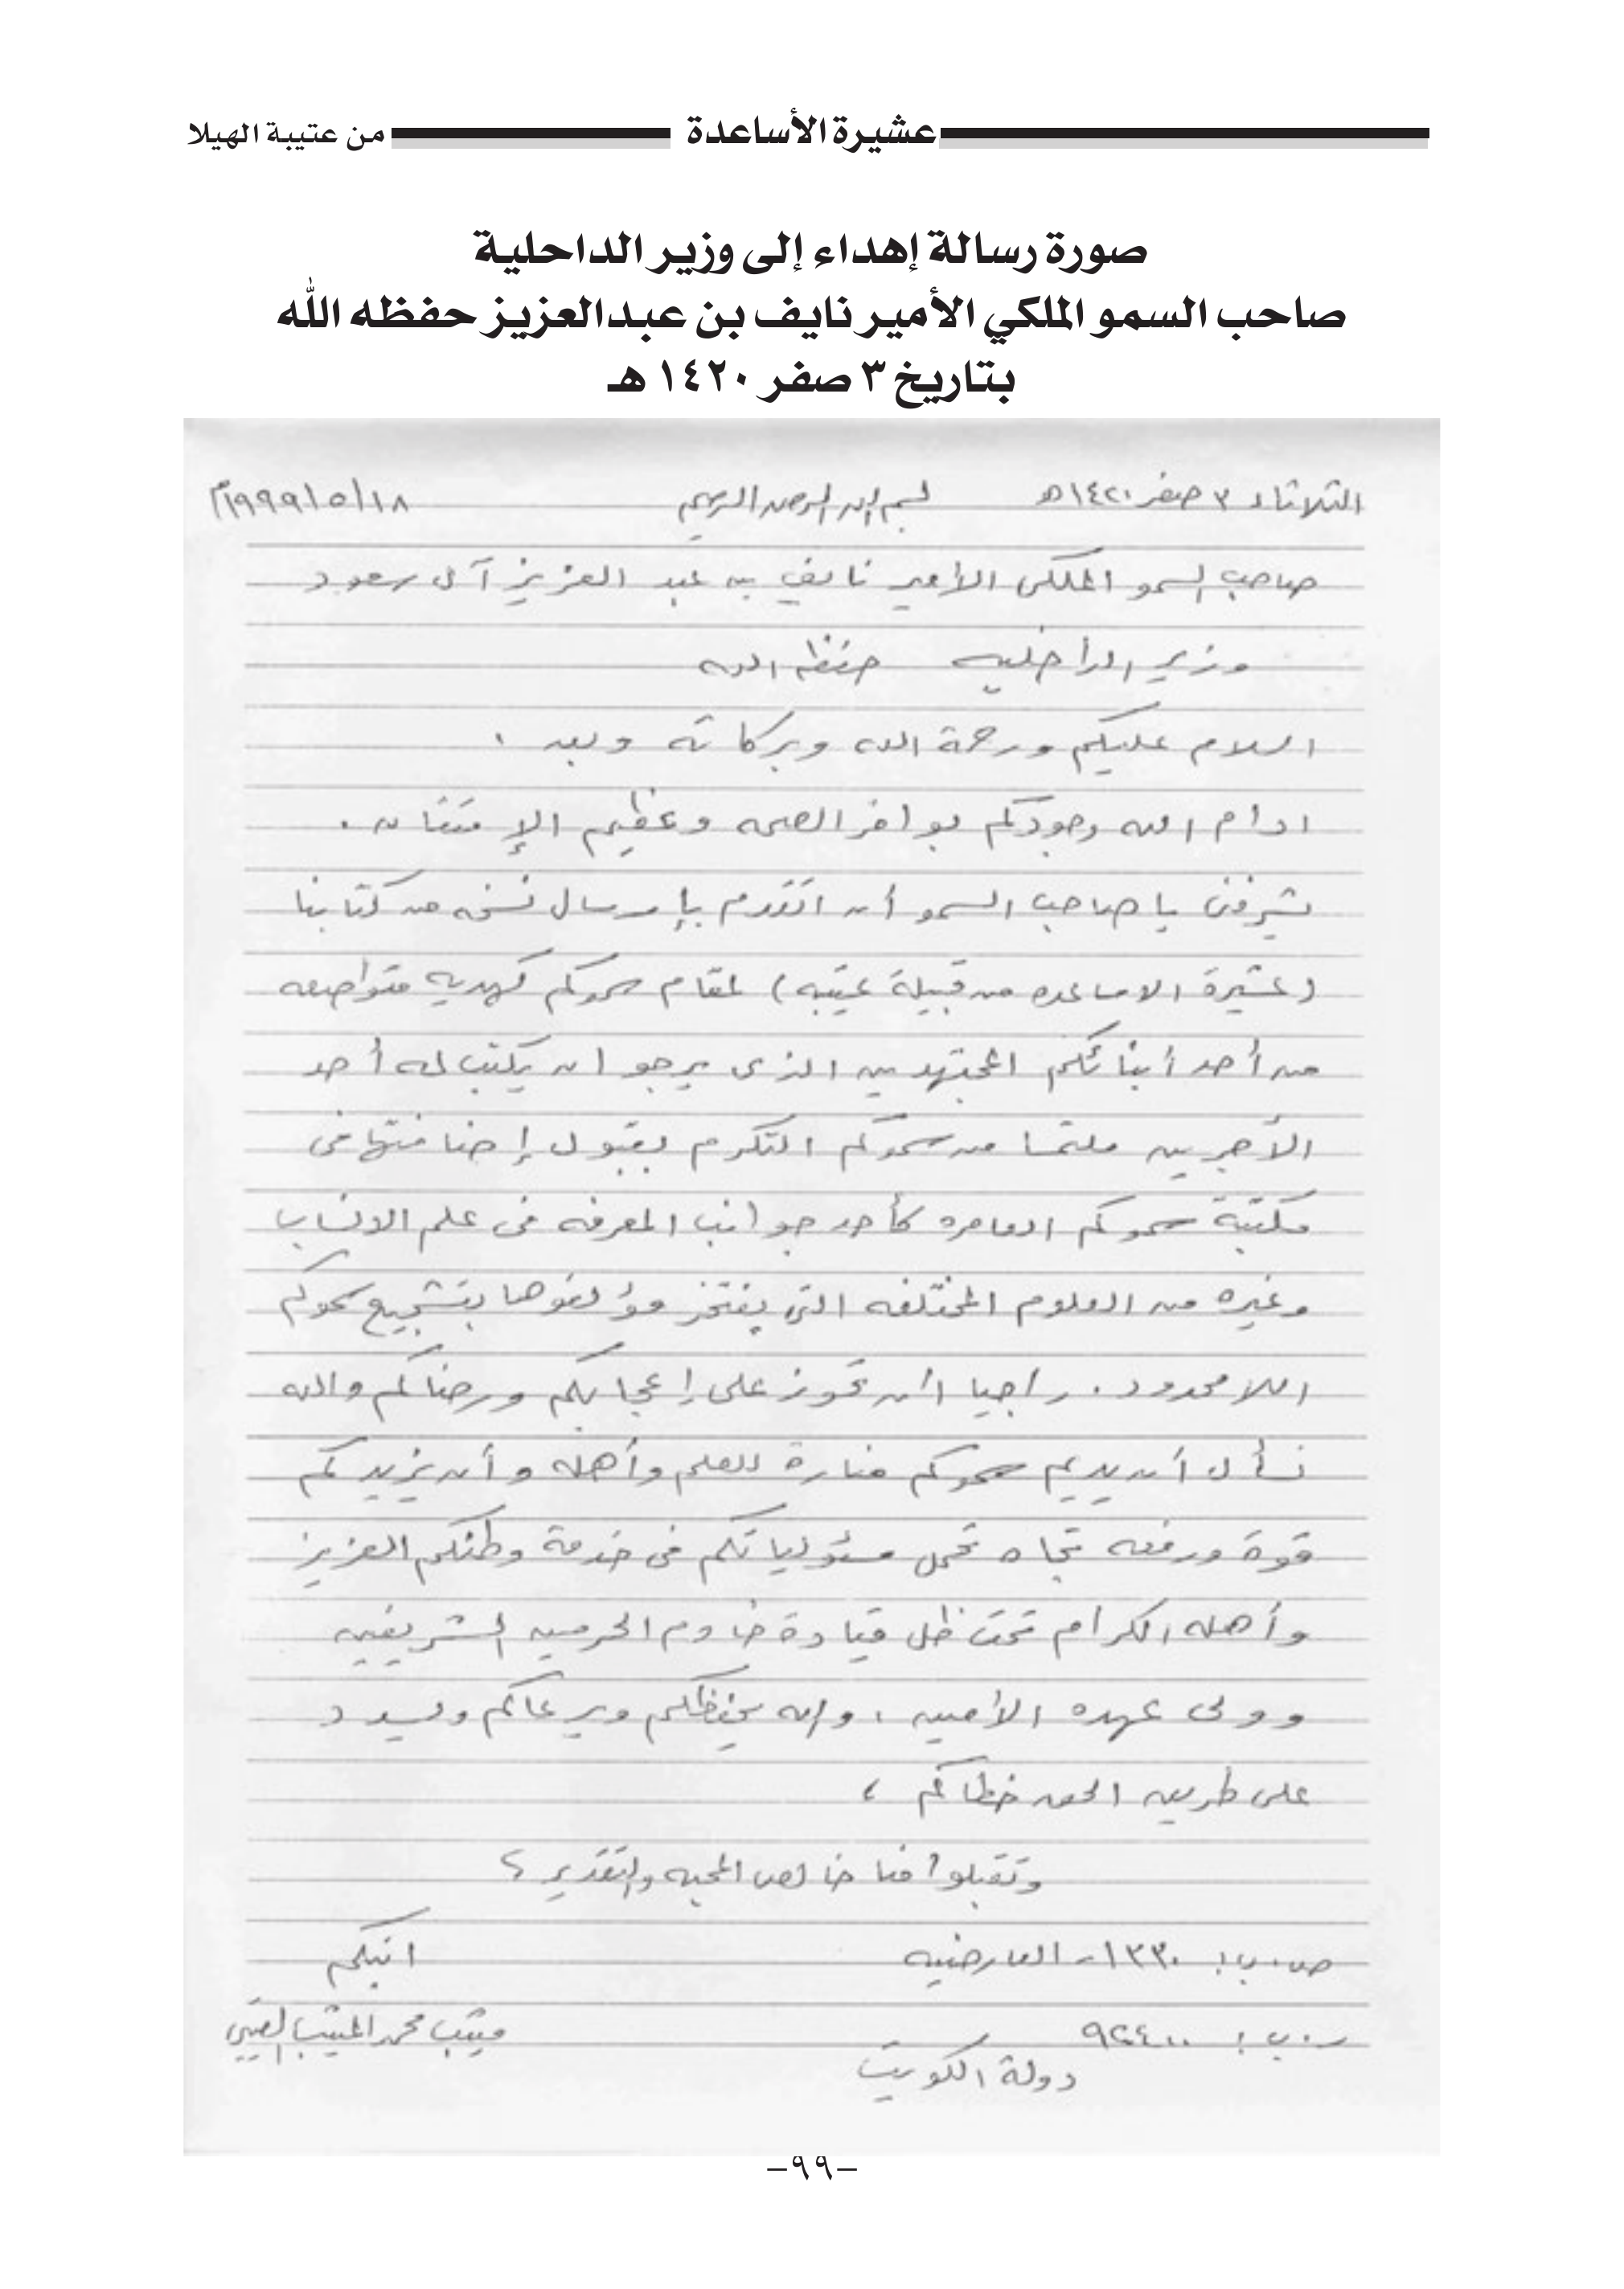 عشيرة الأساعدة من عتيبة الهيلا
صورة رسالة إهداء إلى وزير الداخلية
صاحب السمو الملكي الأمير نايف بن عبدالعزيز حفظه الله
بتاريخ ٣ صفر ١٤٢٠ هـ
الثلاثاء ٣ صفر ١٤٢٠هـ بسم الله الرحمن الرحيم ١٩٩٩/٥/١٨م
صاحب السمو الملكي الأمير نايف بن عبد العزيز آل سعود
وزير الداخليه حفظه الله
السلام عليكم ورحمة الله وبركاته وبعد ،
ادام الله وجودكم بوافر الصحه وعظيم الإمتنان .
يشرفني يا صاحب السمو أن اتقدم بإرسال نسخه من كتابنا
(عشيرة الاساعده من قبيلة عتيبه) لمقام سموكم كهديه متواضعه
من أحد أبنائكم المجتهدين الذي يرجو ان يكتب له أحد
الأجرين ملتمسا من سموكم التكرم بقبول إضافتها في
مكتبة سموكم العامره كأحد جوانب المعرفه في علم الانساب
وغيره من العلوم المختلفه التي يفتخر مؤلفوها بتشجيع سموكم
اللامحدود . راجيا أن تحوز على إعجابكم ورضاكم والله
نسأل أن يديم سموكم منارة للعلم وأهله وأن يزيدكم
قوة ورفعه تجاه تحمل مسئولياتكم في خدمة وطنكم العزيز
وأهله الكرام تحت ظل قيادة خادم الحرمين الشريفين
وولى عهده الأمين ، والله يحفظكم ويرعاكم ويسدد
على طريق الحق خطاكم ،
وتقبلوا منا خالص المحبه والتقدير ؟
ص.ب: ١٣٣٠ - العارضيه ابنكم
ر.ب: ٩٢٤٠٠ متعب محمد المتعب
دولة الكويت
-٩٩-